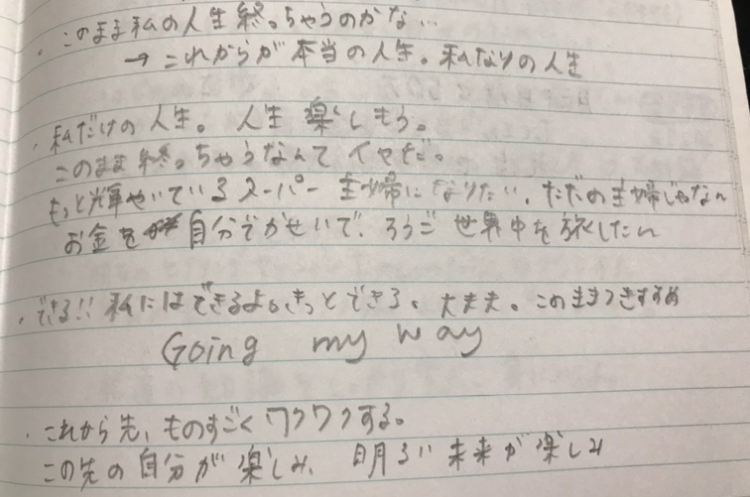 ・このまま私の人生終っちゃうのかな…
→これからが本当の人生。私なりの人生
・私だけの人生。人生楽しもう。
このまま終っちゃうなんてイヤだ。
もっと輝やいているスーパー主婦になりたい、ただの主婦じゃない
お金を自分でかせいで、ろうご世界中を旅したい
・できる!!私にはできるよ。きっとできる、大丈夫。このままつきすすめ
Going my way
・これから先、ものすごくワクワクする。
この先の自分が楽しみ、明るい未来が楽しみ